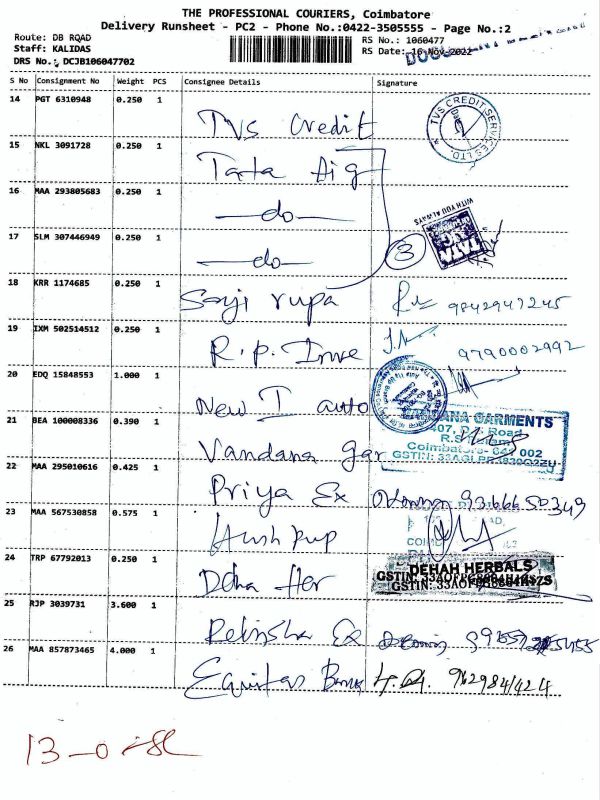 THE PROFESSIONAL COURIERS, Coimbatore
Delivery Runsheet - PC2 - Phone No.:0422-3505555 - Page No.:2
Route: DB RQAD
RS No.: 1060477
Staff: KALIDAS
RS Date: 16 Nov 2022
DRS No.: DCJB106047702
S No Consignment No Weight PCS Consignee Details Signature
14 PGT 6310948 0.250 1 TVS Credit
TVS CREDIT SERVICES LTD.
15 NKL 3091728 0.250 1 Tata Aig
16 MAA 293805683 0.250 1 —do—
WITH YOU ALWAYS
17 SLM 307446949 0.250 1 —do— 3
18 KRR 1174685 0.250 1 rupa 9842947245
19 IXM 502514512 0.250 1 R.p. Inve 9790002992
20 EDQ 15848553 1.000 1 New I auto
21 BEA 100008336 0.390 1 Vandana gar
GARMENTS
407, Road
R.S.
Coimbatore- 641 002
22 MAA 295010616 0.425 1 Priya Ex 9366650349
23 MAA 567530858 0.575 1
24 TRP 67792013 0.250 1 Deha Her
DEHAH HERBALS
25 RJP 3039731 3.600 1 Ex
26 MAA 857873465 4.000 1 Equitas Bank